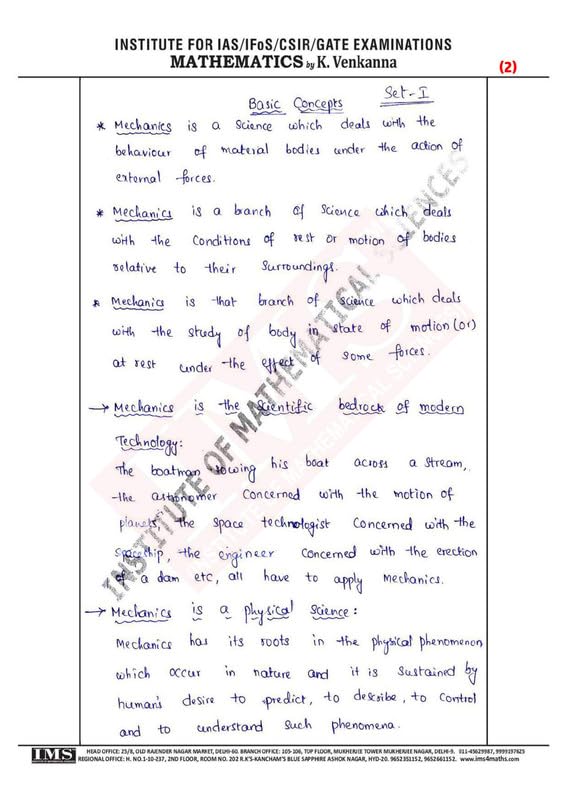 INSTITUTE FOR IAS/IFoS/CSIR/GATE EXAMINATIONS
MATHEMATICS by K. Venkanna
(2)
Set-I
Basic Concepts
* Mechanics is a Science which deals with the
behaviour of material bodies under the action of
external forces.
* Mechanics is a branch of Science which deals
with the Conditions of rest or motion of bodies
relative to their Surroundings.
* Mechanics is that branch of science which deals
with the study of body in state of motion (or)
at rest under the effect of some forces.
→ Mechanics is the Scientific bedrock of modern
Technology:
The boatman rowing his boat across a stream,
the astronomer Concerned with the motion of
planets, the space technologist Concerned with the
Spaceship, the engineer Concerned with the erection
of a dam etc, all have to apply Mechanics.
→ Mechanics is a physical Science:
Mechanics has its roots in the physical phenomenon
which occur in nature and it is Sustained by
human's desire to predict, to describe, to Control
and to understand such phenomena.
INSTITUTE OF MATHEMATICAL SCIENCES
IMS
HEAD OFFICE: 25/8, OLD RAJENDER NAGAR MARKET, DELHI-60. BRANCH OFFICE: 105-106, TOP FLOOR, MUKHERJEE TOWER MUKHERJEE NAGAR, DELHI-9. 011-45629987, 9999197625
REGIONAL OFFICE: H. NO.1-10-237, 2ND FLOOR, ROOM NO. 202 R.K'S-KANCHAM'S BLUE SAPPHIRE ASHOK NAGAR, HYD-20. 9652351152, 9652661152. www.ims4maths.com